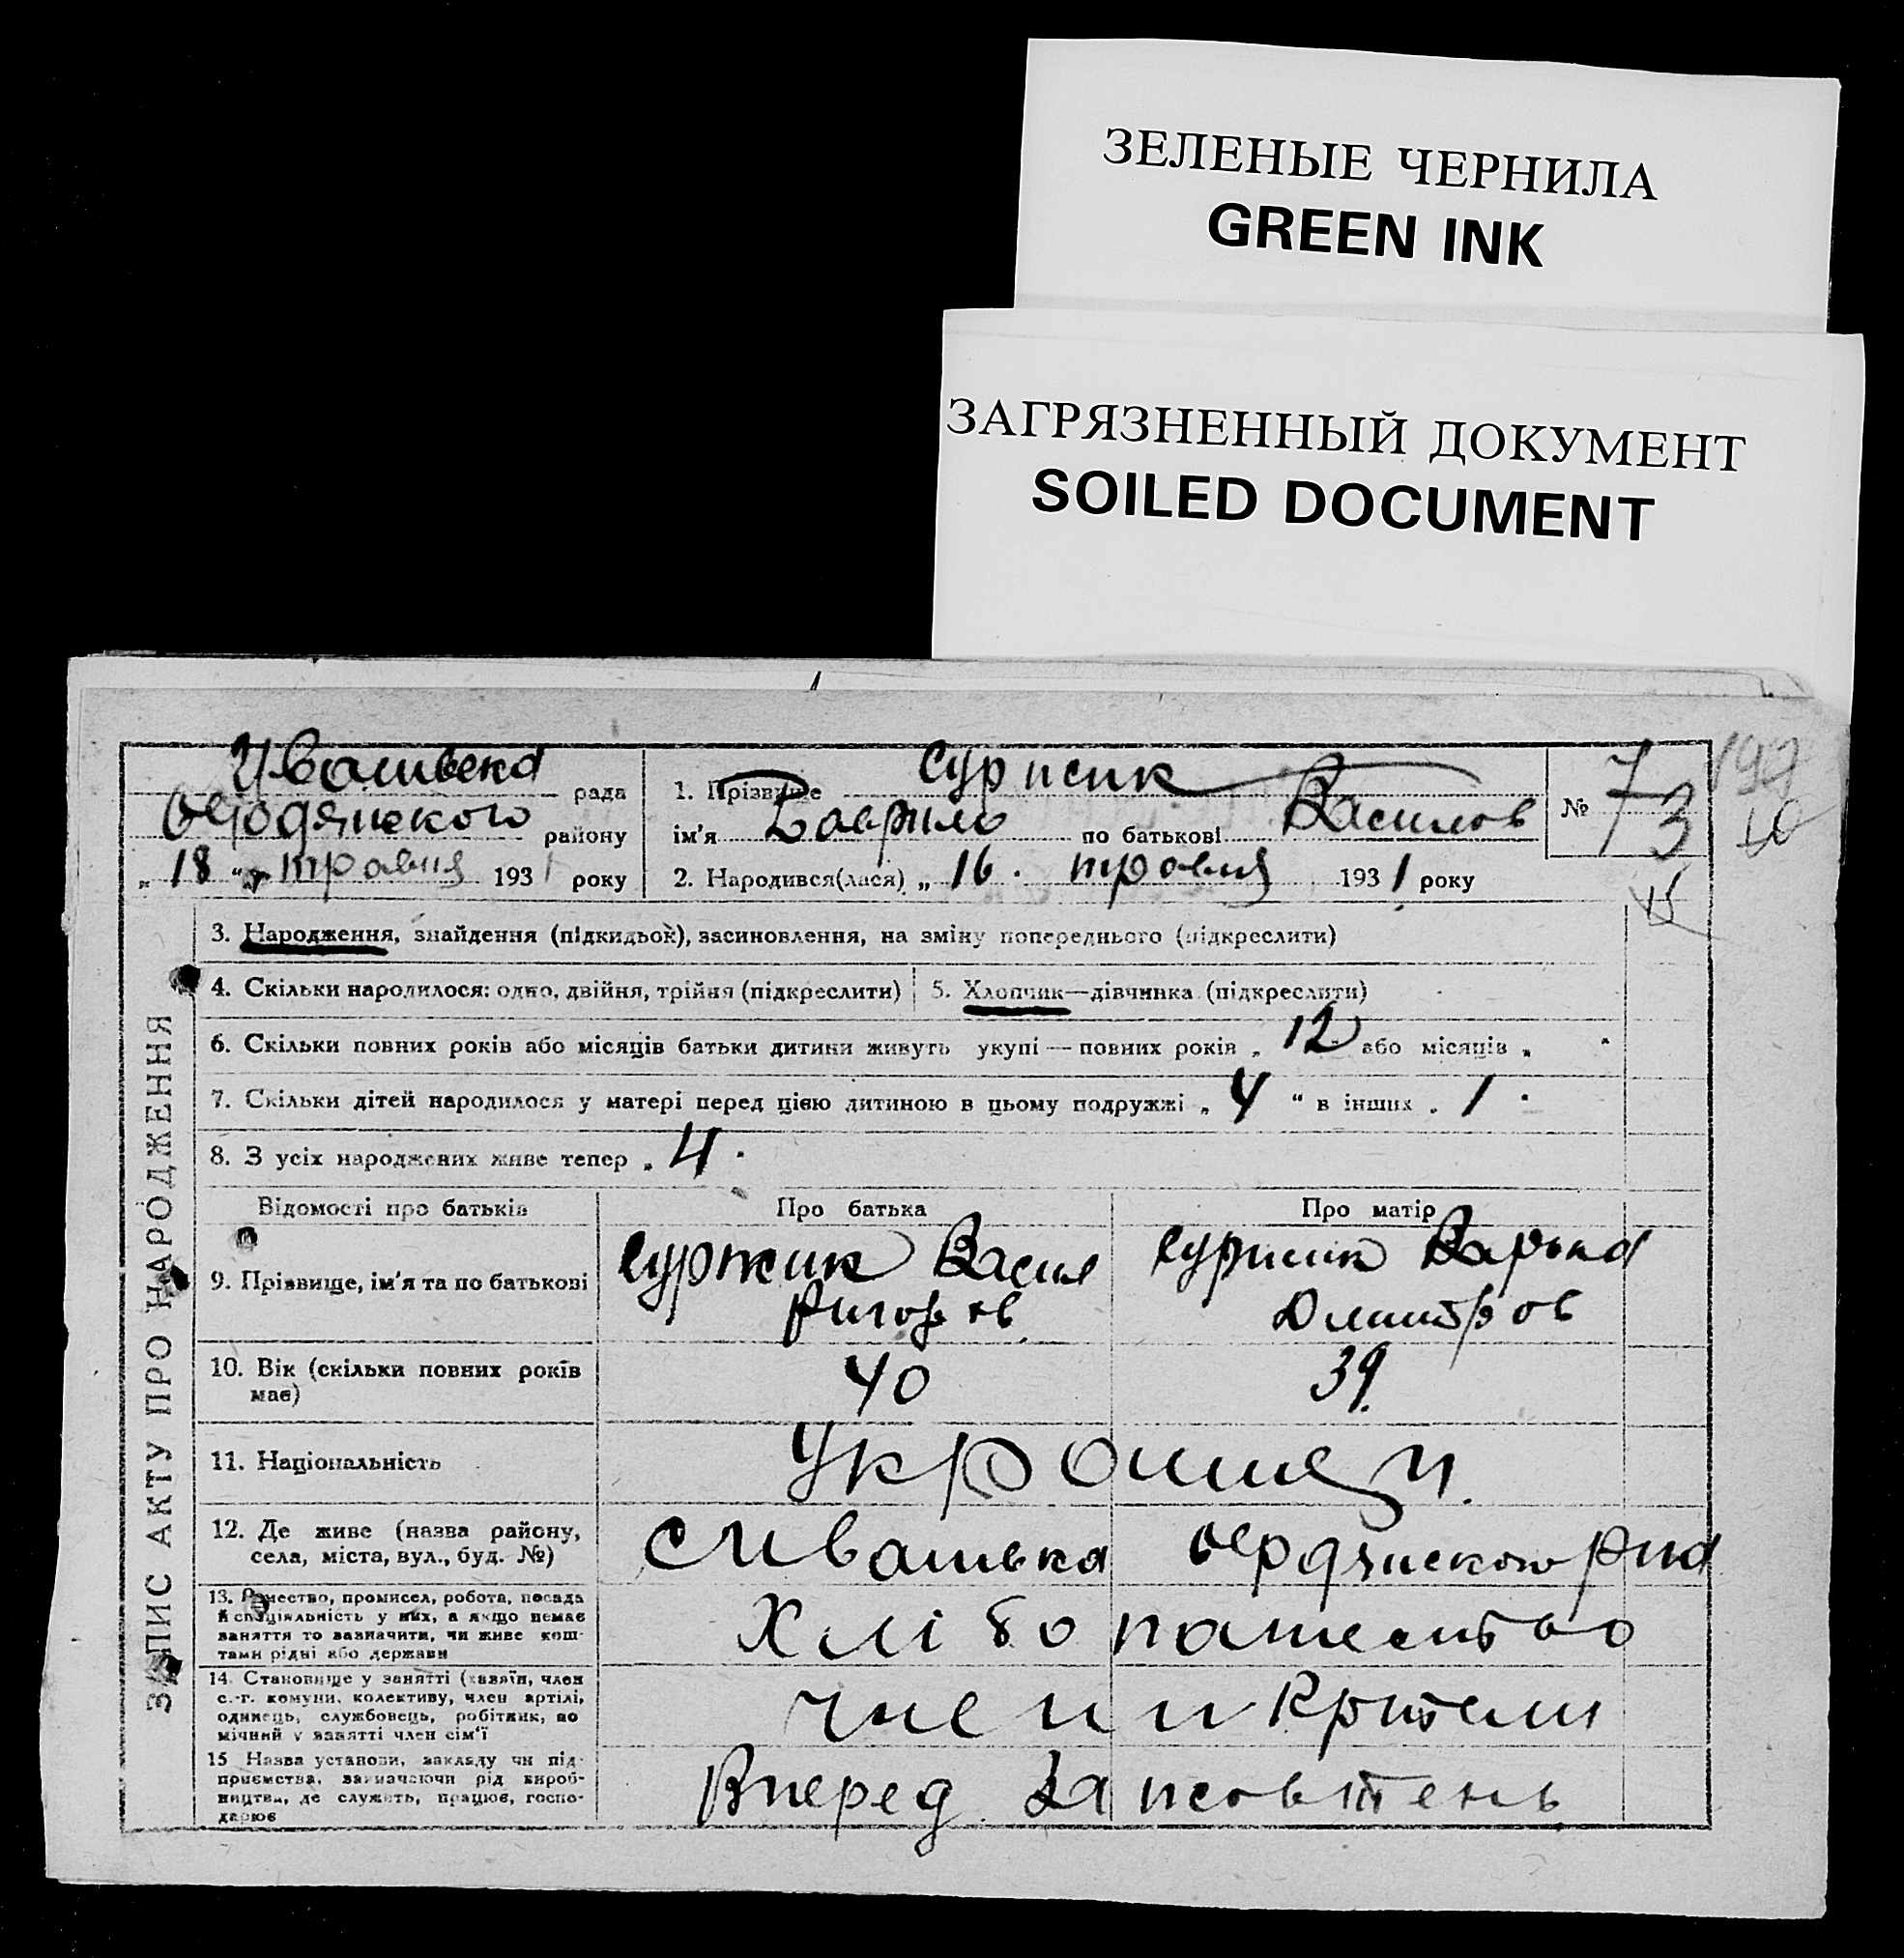 ЗЕЛЕНЫЕ ЧЕРНИЛА
GREEN INK
ЗАГРЯЗНЕННЫЙ ДОКУМЕНТ
SOILED DOCUMENT
ЗАПИС АКТУ ПРО НАРОДЖЕННЯ
рада
району
„ 18 " травня 1931 року
1. Прізвище Суржик
ім'я Гаврило по батькові Василов
2. Народився(лася) „ 16 . травня 1931 року
№ 73
3. Народження, знайдення (підкидьок), засиновлення, на зміну попереднього (підкреслити)
4. Скільки народилося: одно, двійня, трійня (підкреслити)
5. Хлопчик—дівчинка (підкреслити)
6. Скільки повних років або місяців батьки дитини живуть укупі — повних років „ 12 або місяців „
7. Скільки дітей народилося у матері перед цією дитиною в цьому подружжі „ 4 " в інших „ 1
8. З усіх народжених живе тепер „ 4
Відомості про батьків Про батька Про матір
9. Прізвище, ім'я та по батькові Суржик Васил Суржик Варька
Ригоров Дмитров
10. Вік (скільки повних років має) 40 39
11. Національність
12. Де живе (назва району,
села, міста, вул., буд. №)
13. Ремество, промисел, робота, посада
й спеціяльність у них, а якщо немає
заняття то зазначити, чи живе кош-
тами рідні або держави
Хлібопашество
14. Становище у занятті (хазяїн, член
с.-г. комуни, колективу, член артілі,
одинець, службовець, робітник, по
мічний у занятті член сім'ї
член
15 Назва установи, закладу чи під-
приємства, зазначаючи рід вироб-
ництва, де служить, працює, госпо-
дарює
Вперед За жовтень